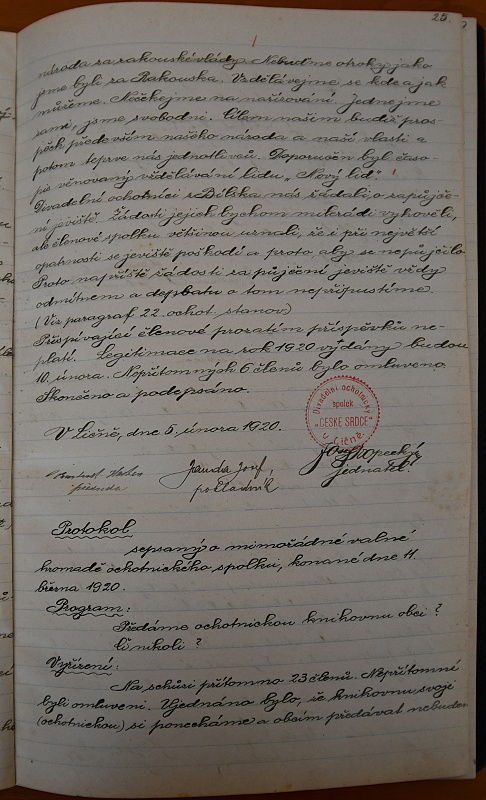 25.
národa za rakouské vlády. Nebuďme otroky jako
jsme byli za Rakouska. Vzdělávejme se kde a jak
můžeme. Nečekejme na nařizování. Jednejme
sami, jsme svobodni. Cílem naším budiž pros-
pěch především našeho národa a naší vlasti a
potom teprve nás jednotlivců. Doporučen byl časo-
pis věnovaný vzdělávání lidu „Nový lid".
Divadelní ochotníci z Bílska nás žádali o zapůjče-
ní jeviště. Žádosti jejich bychom milerádi vyhověli,
ale členové spolku většinou uznali, že i při největší
opatrnosti se jeviště poškodí a proto, aby se nepůjčilo.
Proto napříště žádosti za půjčení jeviště vždy
odmítnem a debatu o tom nepřipustíme.
(Viz paragraf 22. ochot. stanov.)
Přispívající členové prozatím příspěvků ne-
platí. Legitimace na rok 1920 vydány budou
10. února. Nepřítomných 6 členů bylo omluveno.
Skončeno a podepsáno.
V Líčně, dne 5. února 1920.
Divadelní ochotnický
spolek
„ČESKÉ SRDCE"
v Líčně.
předseda
Janda Josef,
pokladník
jednatel
Protokol
sepsaný o mimořádné valné
hromadě ochotnického spolku, konané dne 11.
března 1920.
Program:
Předáme ochotnickou knihovnu obci?
či nikoli?
Vyřízení:
Na schůzi přítomno 23 členů. Nepřítomní
byli omluveni. Ujednáno bylo, že knihovnu svoji
(ochotnickou) si ponecháme a obcím předávat nebudem